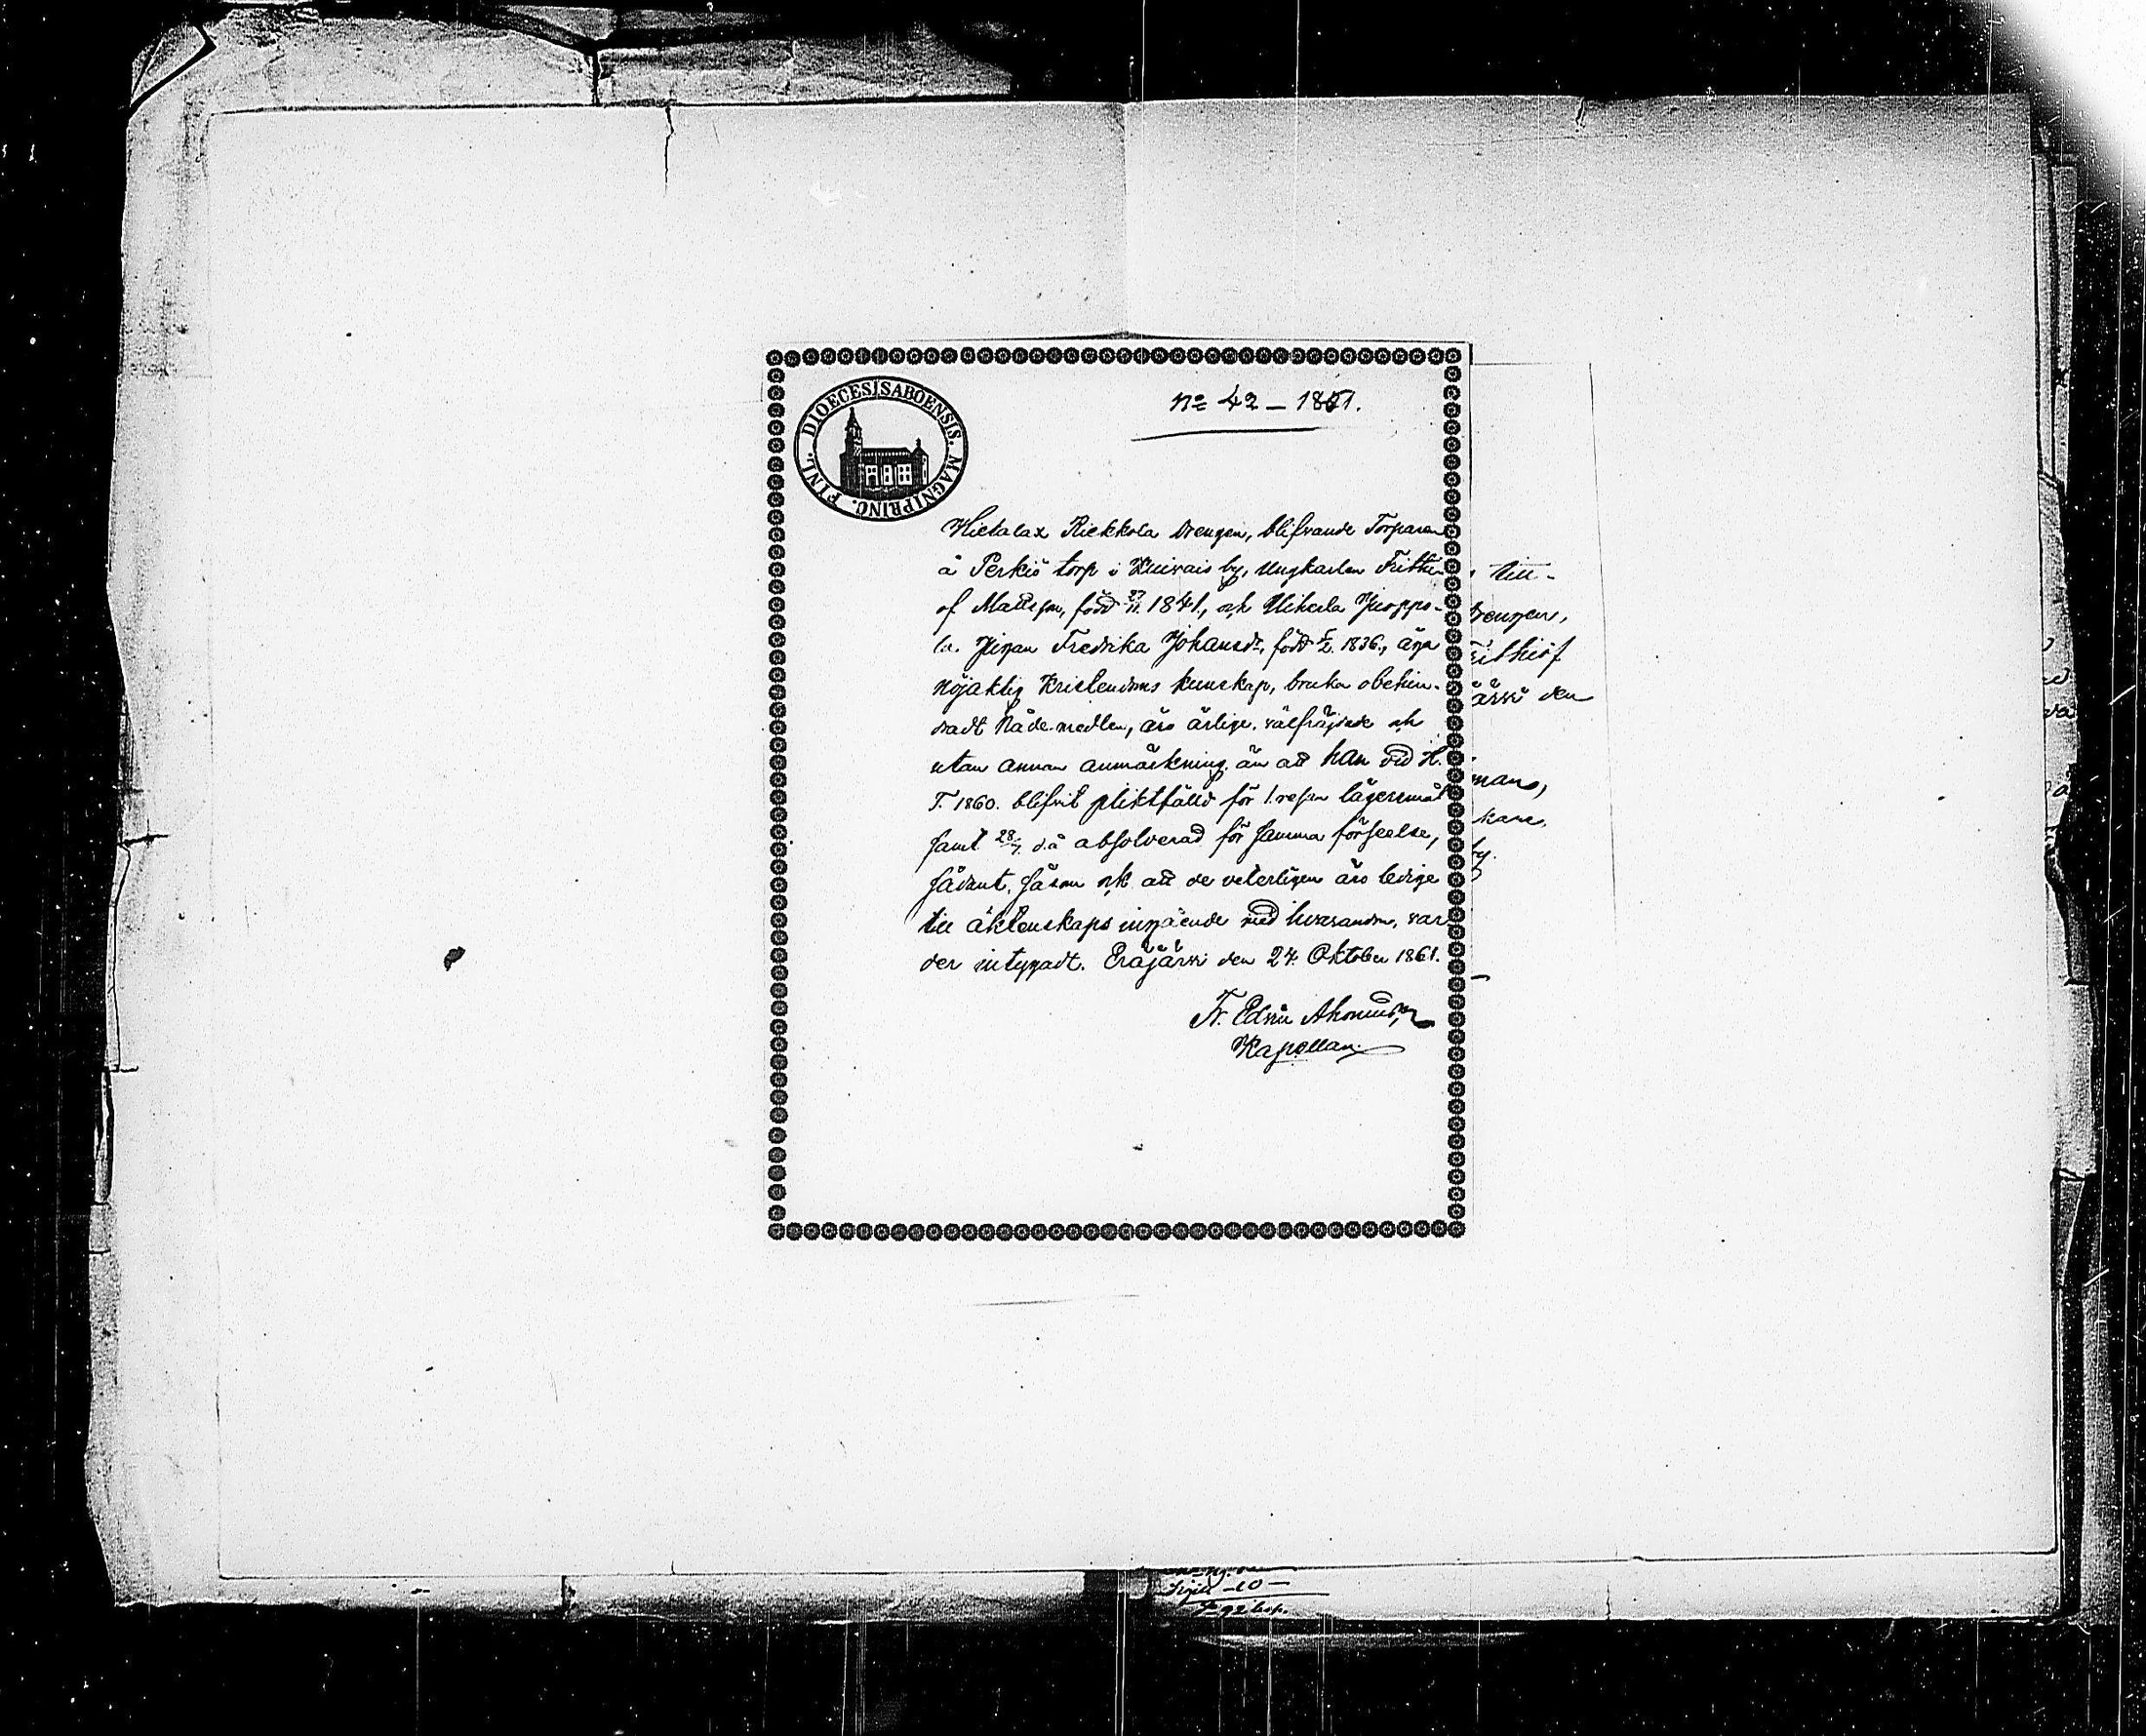 DIOECESISABOENSIS. MAGNIPRINC. FINL.
No 42 – 1861.
Hietalax Riekkola Drengen, blifvande Torparen
å Perkiö torp i Kuivais by, Ungkarlen Frithi-
of Mattsson, född 27/11. 1841., och Uiherla Juoppo-
la Pigan Fredrika Johansdr, född 5/2. 1836., äga
nöjaktig Kristendoms kunskap, bruka obehin-
dradt Nådemedlen, äro ärlige, välfräjdade och
utan annan anmärkning än att han vid H.
T. 1860. blifvit pliktfälld för 1. resan lägersmål
samt 28/7. d.å absolverad för samma förseelse,
sådant, såsom ock att de veterligen äro ledige
till äktenskaps ingående med hvarandra, var
der intygadt. Eräjärvi den 24. Oktober 1861.
Fr. Edvin
Kapellan.
till-
Drengen,
Frithiof
järvi den
mans,
by.
– 10 –